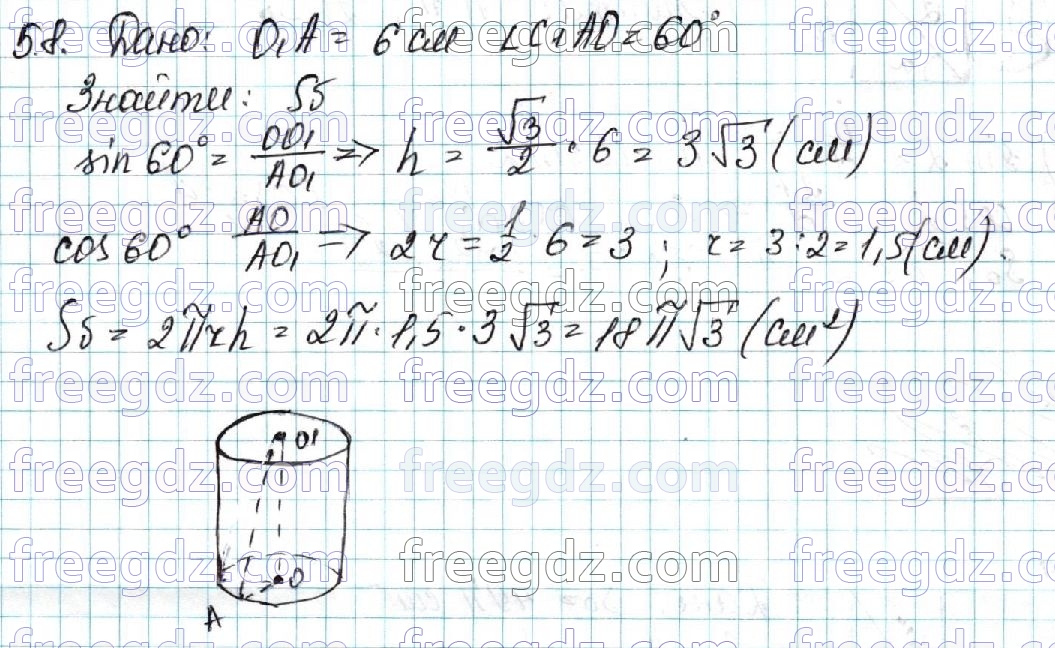 5.8. Дано: O₁A = 6 см ∠O₁AO = 60°
Знайти: Sб
sin 60° = OO₁/AO₁ => h = √3/2 · 6 = 3√3 (см)
cos 60° AO/AO₁ => 2r = 1/2 · 6 = 3 ; r = 3:2 = 1,5 (см).
Sб = 2πrh = 2π · 1,5 · 3√3 = 18π√3 (см²)
O1
O
A
freegdz.com freegdz.com freegdz.com
freegdz.com freegdz.com freegdz.com
freegdz.com freegdz.com freegdz.com
freegdz.com freegdz.com freegdz.com
freegdz.com freegdz.com freegdz.com
freegdz.com freegdz.com freegdz.com
freegdz.com freegdz.com freegdz.com
freegdz.com freegdz.com freegdz.com